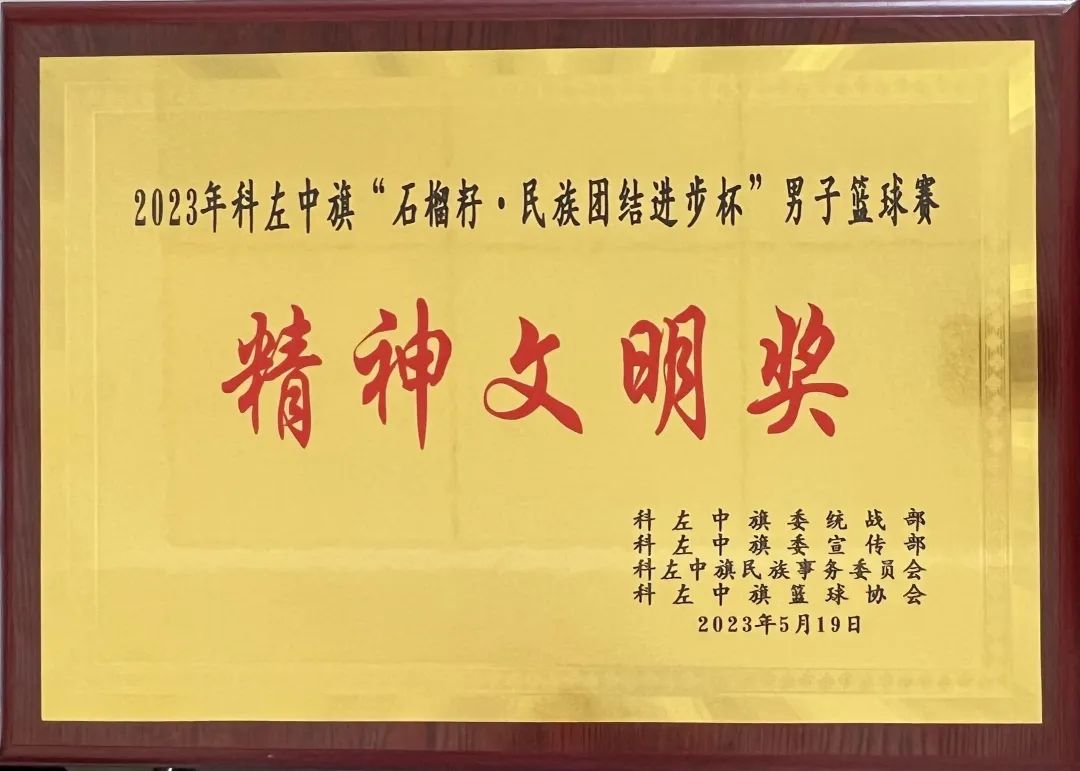 2023年科左中旗“石榴籽·民族团结进步杯”男子篮球赛
精神文明奖
科左中旗委统战部
科左中旗委宣传部
科左中旗民族事务委员会
科左中旗篮球协会
2023年5月19日